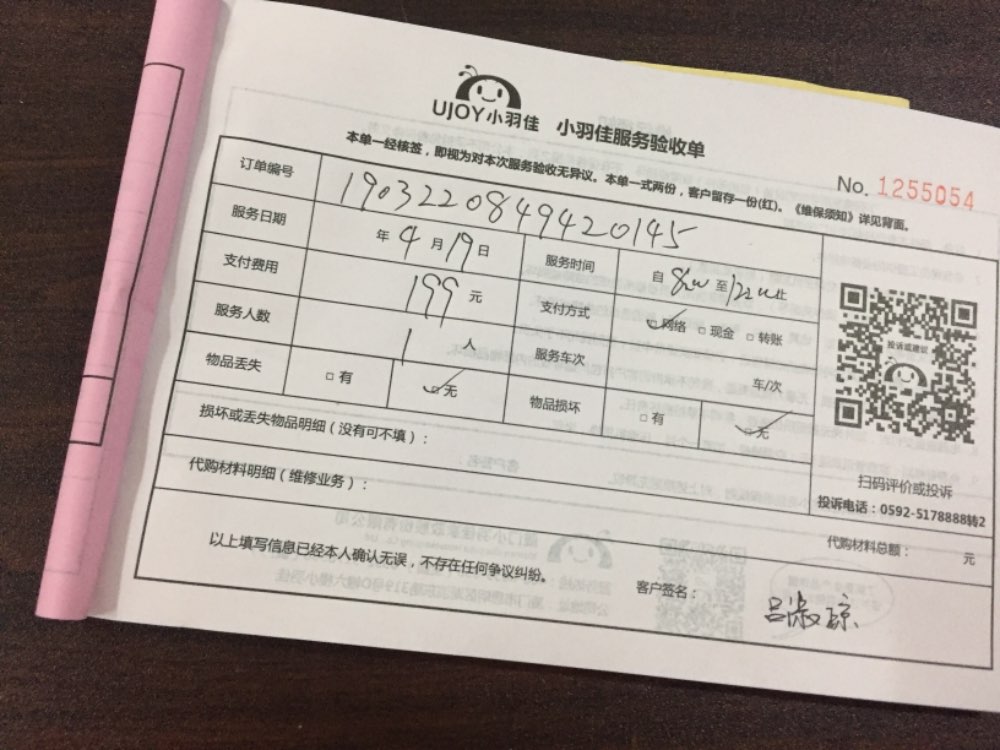 UJOY小羽佳 小羽佳服务验收单
本单一经核签，即视为对本次服务验收无异议。本单一式两份，客户留存一份(红)。《维保须知》详见背面。
No. 1255054
订单编号 1903220849420145
服务日期 年 4 月 19 日 服务时间 自 8:00 至 12:00 止
支付费用 199 元 支付方式 网络 □ 现金 □ 转账
服务人数 1 人 服务车次 车/次
物品丢失 □ 有 无 物品损坏 □ 有 无
投诉或建议
扫码评价或投诉
投诉电话：0592-5178888转2
损坏或丢失物品明细（没有可不填）：
代购材料明细（维修业务）：
代购材料总额： 元
以上填写信息已经本人确认无误，不存在任何争议纠纷。
客户签名： 吕淑琼